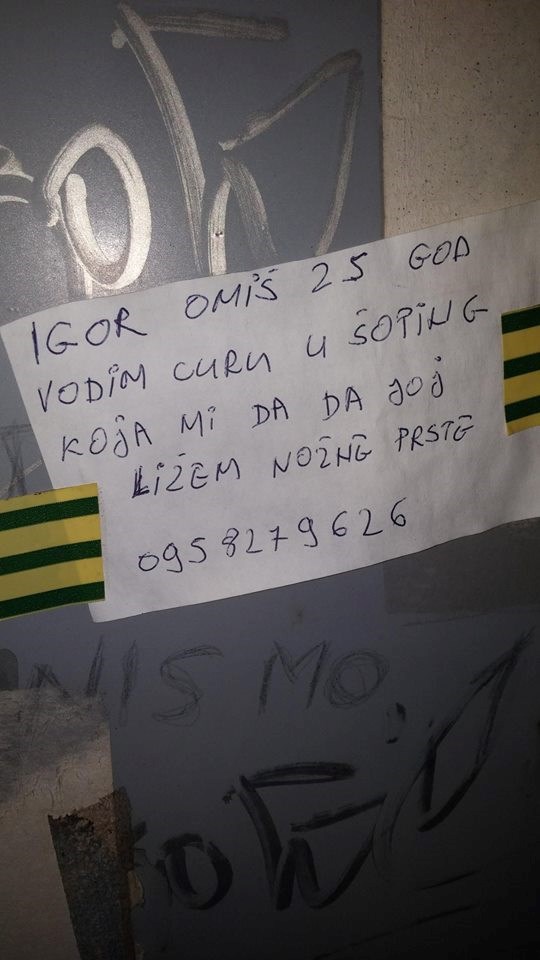 IGOR OMIŠ 25 GOD
VODIM CURU U ŠOPING
KOJA MI DA DA JOJ
LIŽEM NOŽNE PRSTE
0958279626
NISMO